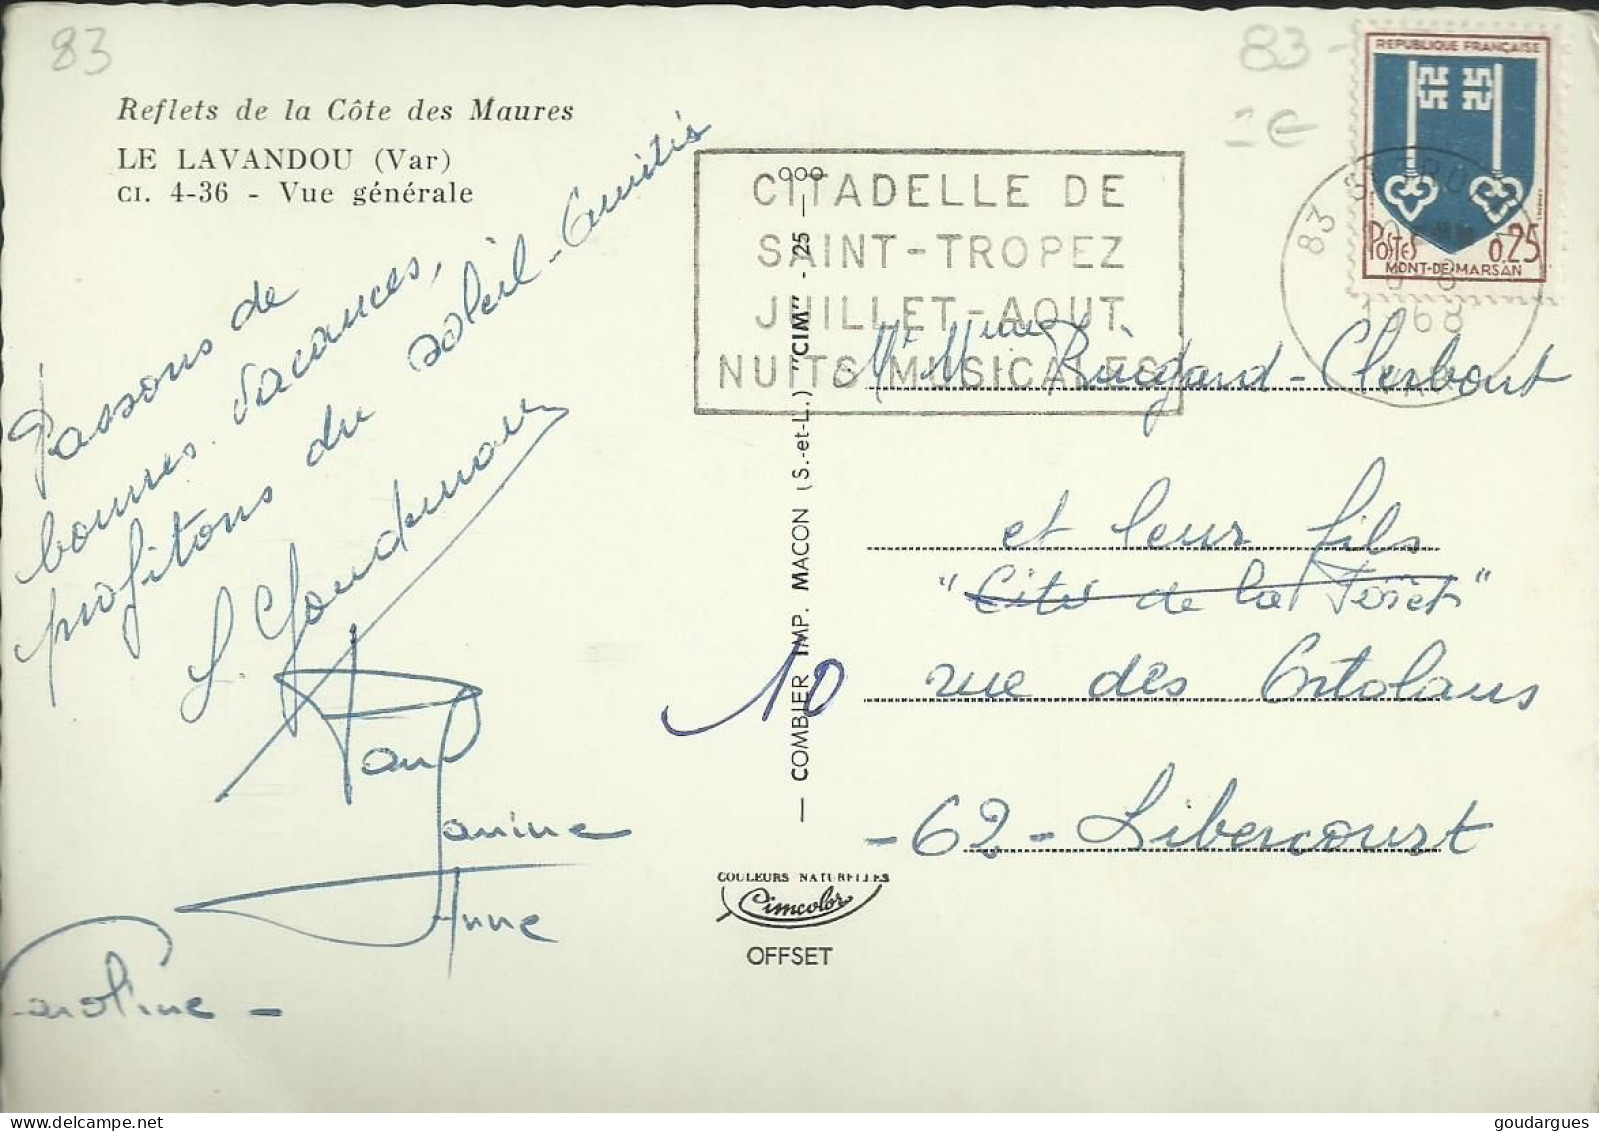 83
83 -
1€
Reflets de la Côte des Maures
LE LAVANDOU (Var)
CI. 4-36 - Vue générale
Passons de
bonnes vacances,
profitons du soleil - Amitiés
Paul
Janine
Anne
Caroline -
CITADELLE DE
SAINT-TROPEZ
JUILLET-AOUT
NUITS MUSICALES
83 ST TROPEZ
1968
VAR
REPUBLIQUE FRANÇAISE
POSTES 0,25
MONT-DE-MARSAN
— COMBIER IMP. MACON (S.-et-L.) "CIM" - 25 — ooo
Mr Mme Clerbout
et leur fils
"Cité de la Forêt"
10 rue des Ortolans
- 62 - Libercourt
COULEURS NATURELLES
Cimcolor
OFFSET
goudargues.